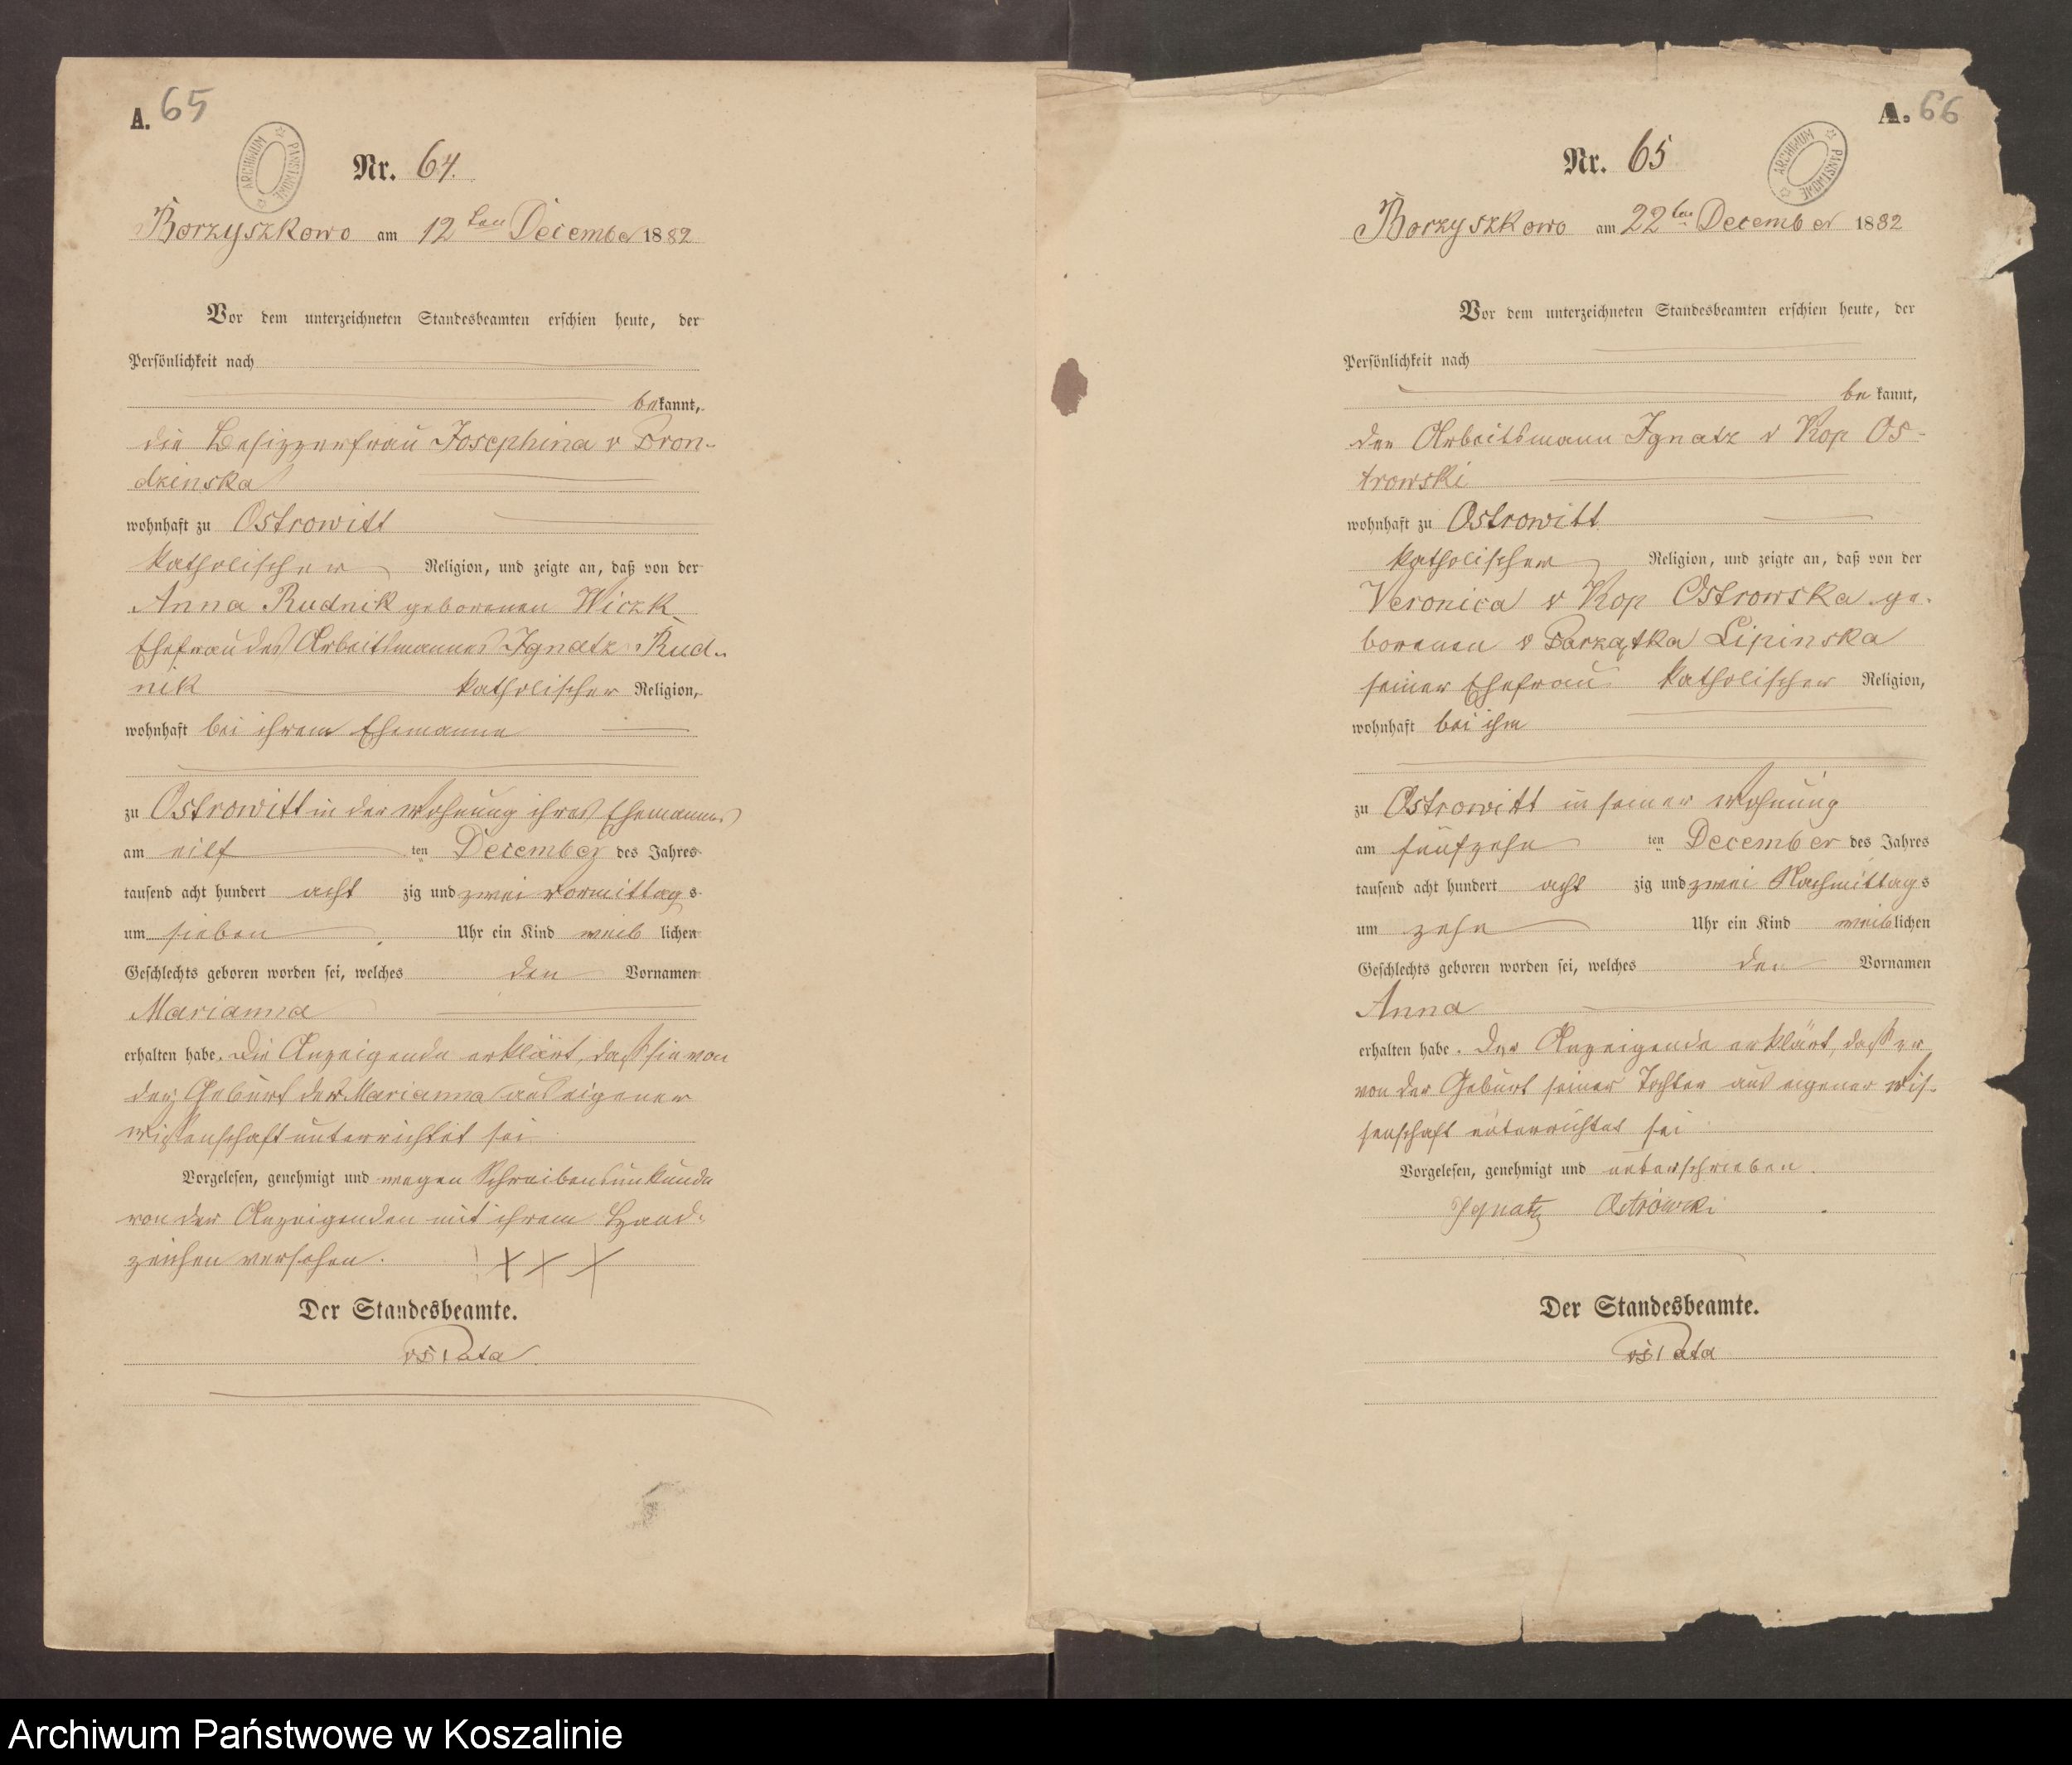 A. 65
ARCHIWUM PAŃSTWOWE
Nr. 64.
Borzyszkowo am 12ten December 1882
Vor dem unterzeichneten Standesbeamten erschien heute, der
Persönlichkeit nach
bekannt,
die Besizzerfrau Josephina v Bron-
dzinska
wohnhaft zu Ostrowitt
katholischer Religion, und zeigte an, daß von der
Anna Rudnik geborenen Wiczk
Ehefrau des Arbeitsmannes Ignatz Rud-
nik katholischer Religion,
wohnhaft bei ihrem Ehemanne
zu Ostrowitt in der Wohnung ihres Ehemannes
am eilf ten December des Jahres
tausend acht hundert acht zig und zwei Vormittags
um sieben Uhr ein Kind weiblichen
Geschlechts geboren worden sei, welches den Vornamen
Marianna
erhalten habe. Die Anzeigende erklärt, daß sie von
der Geburt der Marianna aus eigener
Wissenschaft unterrichtet sei
Vorgelesen, genehmigt und wegen Schreibensunkunde
von der Anzeigenden mit ihrem Hand-
zeichen versehen. XXX
Der Standesbeamte.
A. 66
ARCHIWUM PAŃSTWOWE
Nr. 65
Borzyszkowo am 22ten December 1882
Vor dem unterzeichneten Standesbeamten erschien heute, der
Persönlichkeit nach
be kannt,
der Arbeitsmann Ignatz v Kop Os-
trowski
wohnhaft zu Ostrowitt
katholischer Religion, und zeigte an, daß von der
Veronica v Kop Ostrowska ge-
borenen v Lipinska
seiner Ehefrau katholischer Religion,
wohnhaft bei ihm
zu Ostrowitt in seiner Wohnung
am fünfzehn ten December des Jahres
tausend acht hundert acht zig und zwei Nachmittags
um zehn Uhr ein Kind weiblichen
Geschlechts geboren worden sei, welches den Vornamen
Anna
erhalten habe. Der Anzeigende erklärt, daß er
von der Geburt seiner Tochter aus eigener Wis-
senschaft unterrichtet sei
Vorgelesen, genehmigt und unterschrieben.
Ignatz Ostrowski
Der Standesbeamte.
Archiwum Państwowe w Koszalinie